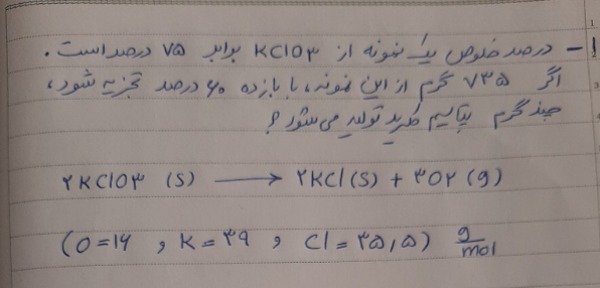 ۱- درصد خلوص یک نمونه از KClO۳ برابر ۷۵ درصد است.
اگر ۷۳۵ گرم از این نمونه، با بازده ۶۰ درصد تجزیه شود،
چند گرم پتاسیم کلرید تولید می‌شود؟
۲KClO۳ (s) ⟶ ۲KCl(s) + ۳O۲ (g)
(O=۱۶ , K=۳۹ , Cl=۳۵,۵) g/mol